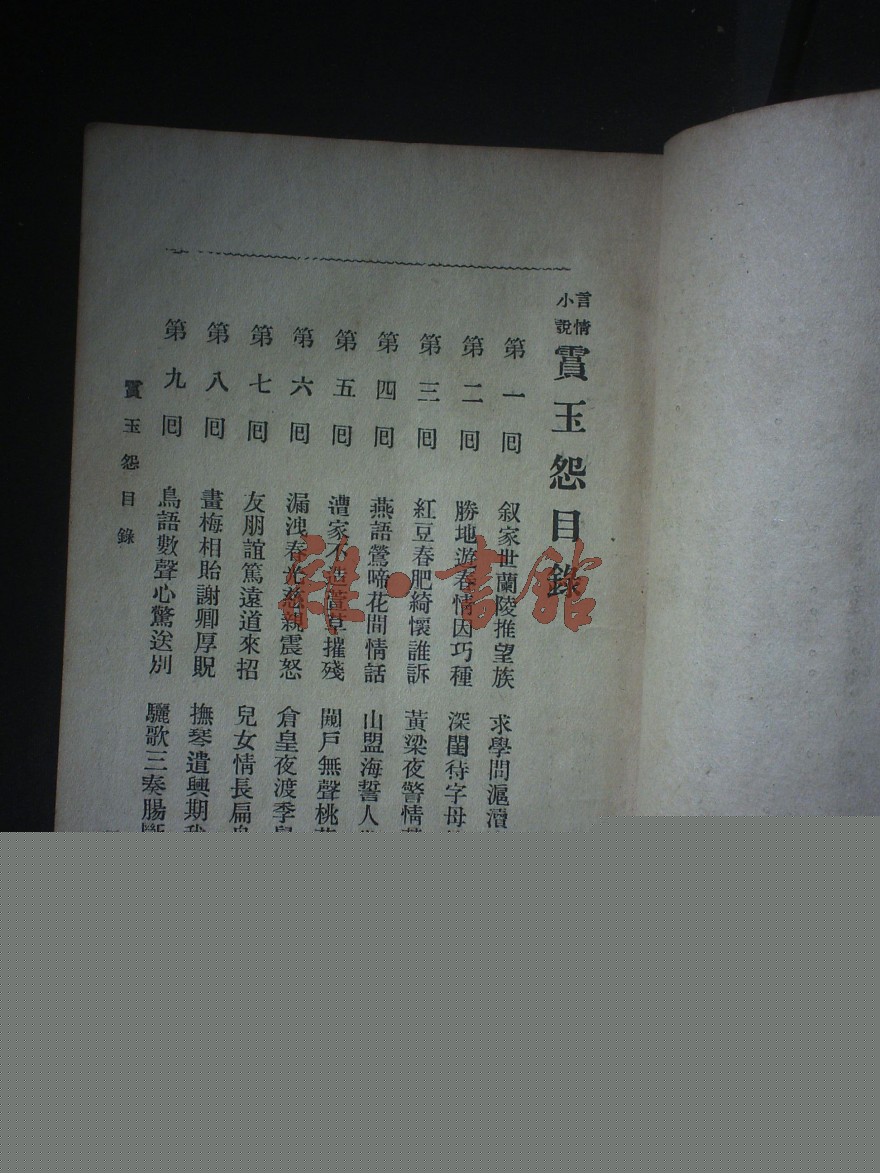 言情小說
霣玉怨目錄
第一囘 叙家世蘭陵推望族 求學問滬瀆
第二囘 勝地遊春情因巧種 深閨待字母
第三囘 紅豆春肥綺懷誰訴 黃梁夜警情
第四囘 燕語鶯啼花間情話 山盟海誓人
第五囘 遭家不造萱草摧殘 闃戶無聲桃
第六囘 漏洩春光慈親震怒 倉皇夜渡季
第七囘 友朋誼篤遠道來招 兒女情長扁
第八囘 畫梅相貽謝卿厚貺 撫琴遣興期
第九囘 鳥語數聲心驚送別 驪歌三奏腸
霣玉怨目錄
雜·書館